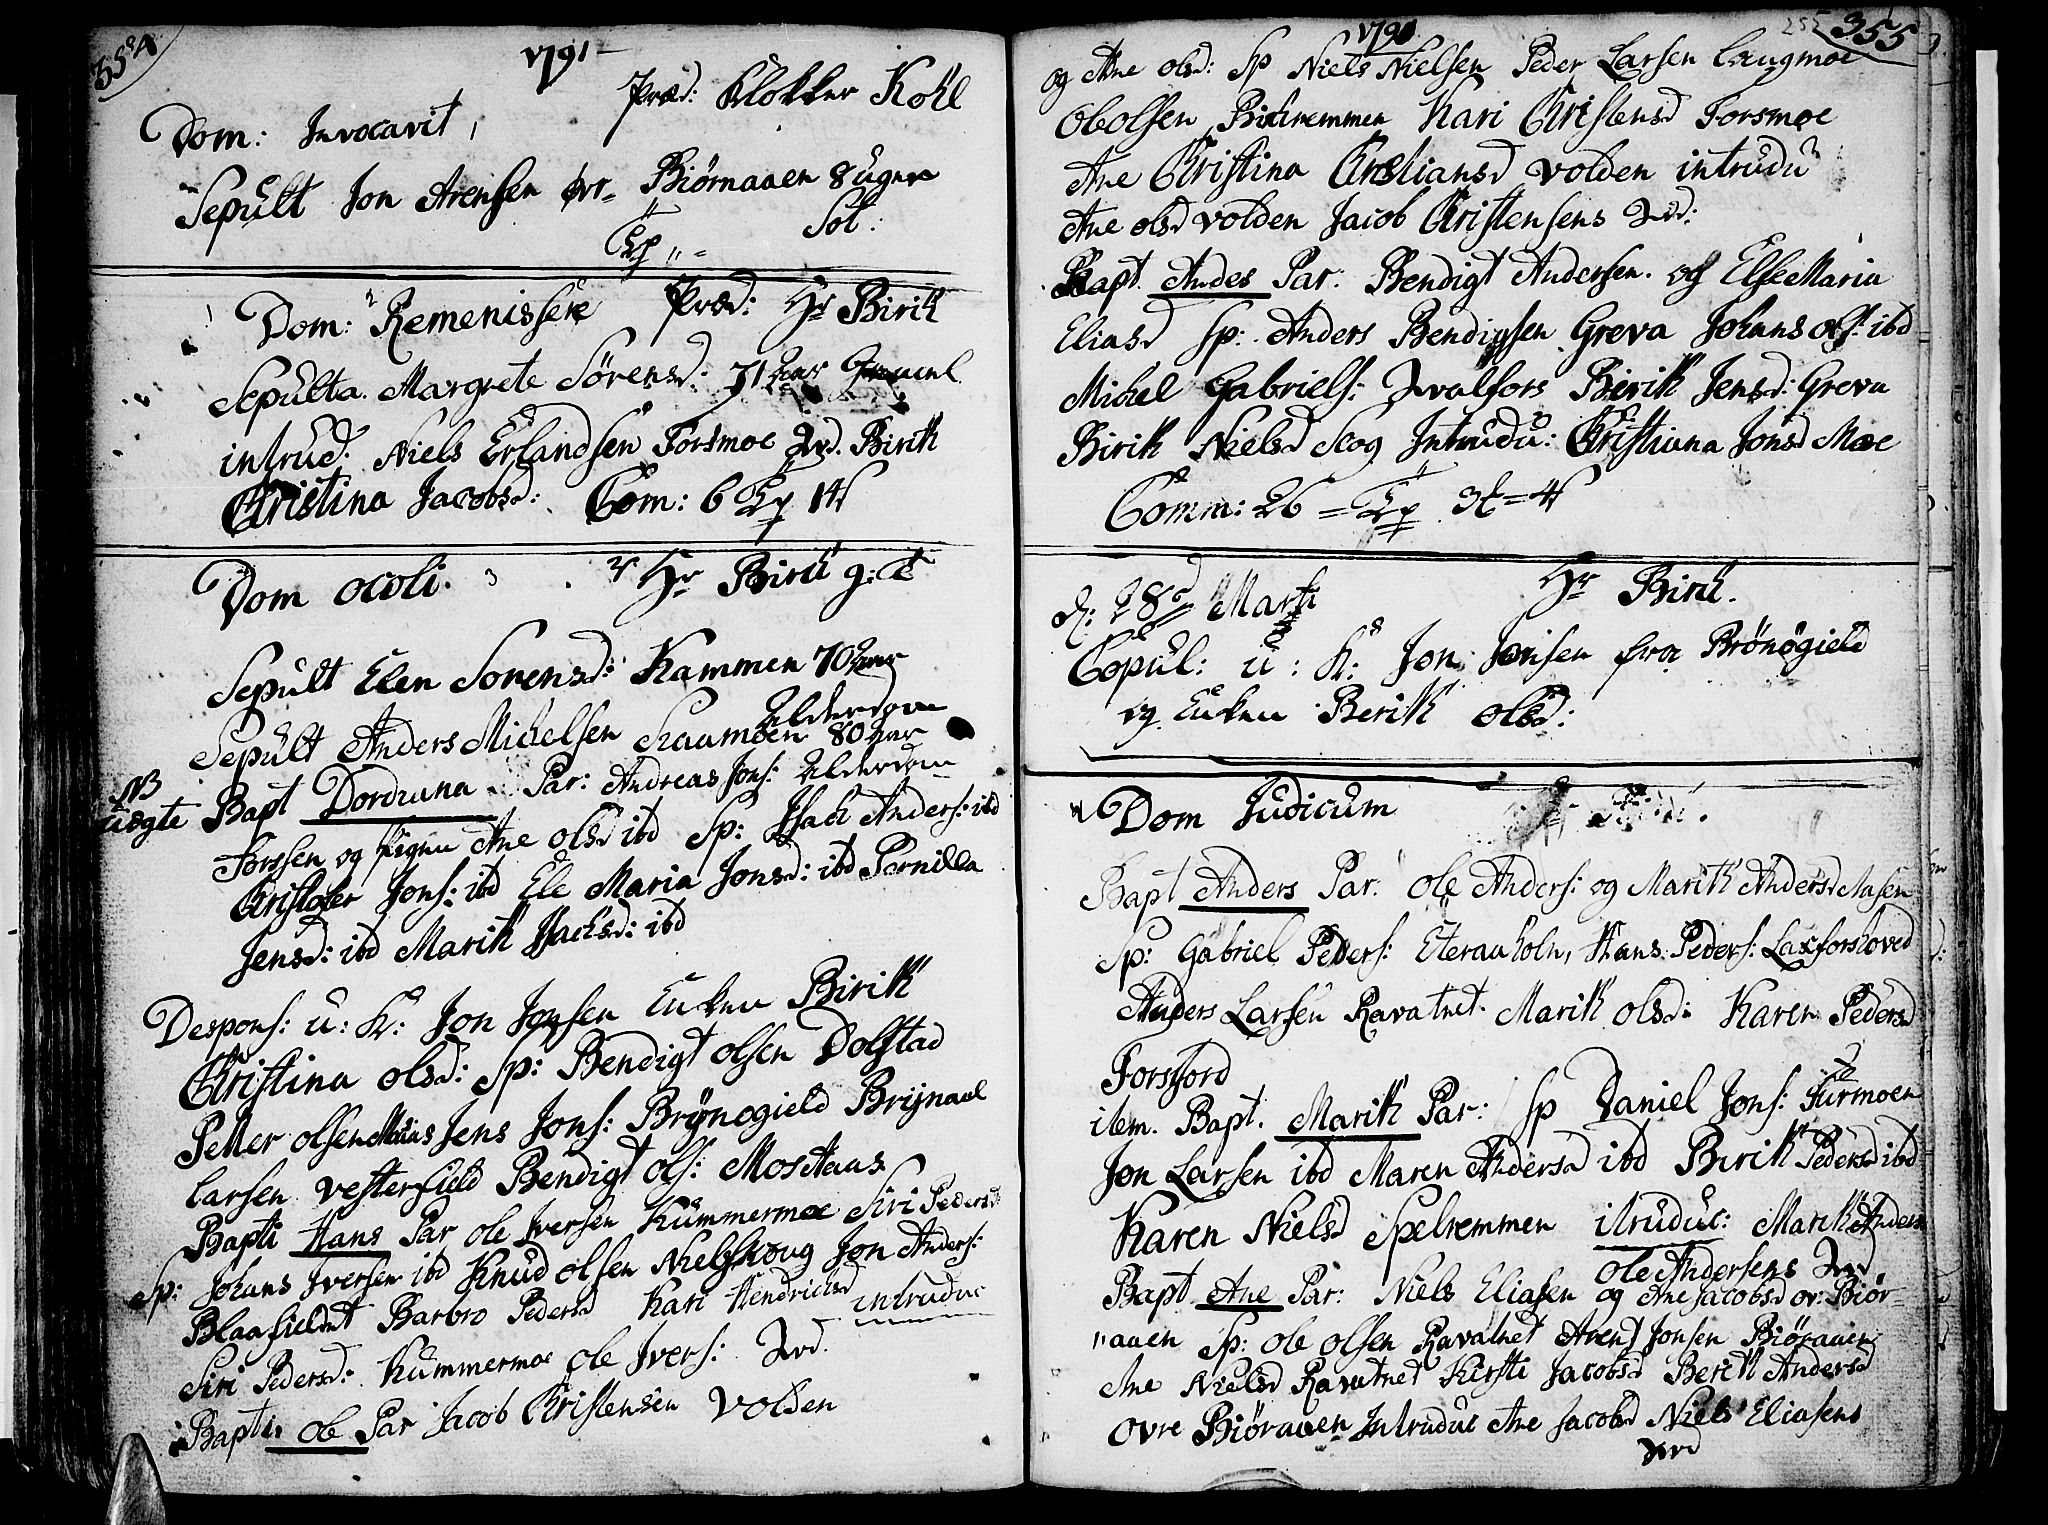 354
1791
Præd: Klokker Kohl
Dom: Invocavit 1
Sepult Jon Arensen øvr- Biørnaaen 8 Uger
Sol:
Exp
Dom: 2 Remenissere Præd: Hr Birik
Sepulta. Margrete Sørensd: 71 aar Gammel
intrud. Niels Erlandsen Forsmoe Qvd. Birik
Christina Jacobsd: Com: 6 Exp
Dom Oculi. 3 Hr Birik
Sepult Elen Sorensd: Kammen 70 aar
Alderdom
Sepult Anders Michelsen Kaarmoen 80 aar
Alderdom
NB
uægte Bapt Par: Andreas Jons:
Forssen og Ane olsd ibd Sp: Isach Anders: ibd
Christofer Jons: ibd Ele Maria Jonsd: ibd Pernilla
Jensd: ibd Marith Isachsd: ibd
Despons: u: K: Jon Jonsen Enken Birik
Christina olsd: Sp: Bendigt olsen Dolstad
Petter olsen Jens Jons: Brynogield
Larsen vesterfield Bendigt ols: Mosaas
Bapti Hans Par ole Iversen Kummermoe Siri Pedersd
Sp: Johans Iversen ibd Knud olsen Nielskoug Jon Anders:
Blaafieldet Barbro Pedersd Kari Hendrichsd introduc
Siri Pedersd: Kummermoe ole Ivers: Qvd.
Bapti. ole Par Jacob Christensen Volden
1791
355
og Ane olsd: Sp Niels Nielsen Peder Larsen Laugmoe
Ole olsen Kari Christensd Forsmoe
Ane Christina Christiansd volden introdu
Ane olsd volden Jacob Christensens Qvd:
Bapt. Andes Par: Bendigt Andersen. og Else Maria
Eliasd Sp: Anders Bendigsen Greva Johans ols: ibd
Michel Gabriels: Qvalfors Birik Jensd: Greva
Birik Nielsd Scog Intrudu: Christiana Jonsd Moe
Comm: 26 = Exp
d: 28d Marti Hr Birik.
Copul: u: K: Jon Jonsen fra Brønøgield
og Enken Berik olsd:
Dom Judicum
Bapt Anders Par: ole Anders: og Marith Andersd
Sp: Gabriel Peders: Hans Peders: Laxforshoved
Anders Larsen Ravatnet. Marith olsd: Karen Pedersd
Forsjord
item. Bapt. Marith Par: Sp Daniel Jons: Turmoen
Jon Larsen ibd Maren Andersd ibd Birik Pedersd ibd
Karen Nielsd Spelremmen itruduc: Marith Anders
ole Andersens Qvd
Bapt Ane Par: Niels Eliasen og Ane Jacobsd ov: Biør-
"aaen Sp: ole olsen Ravatnet Arent Jonsen Biøraaen
Ane Nielsd Ravatnet Kirsti Jacobsd Berith Andersd
Ovre Biøraaen Intruduc Ane Jacobsd Niels Eliasens
Qvd